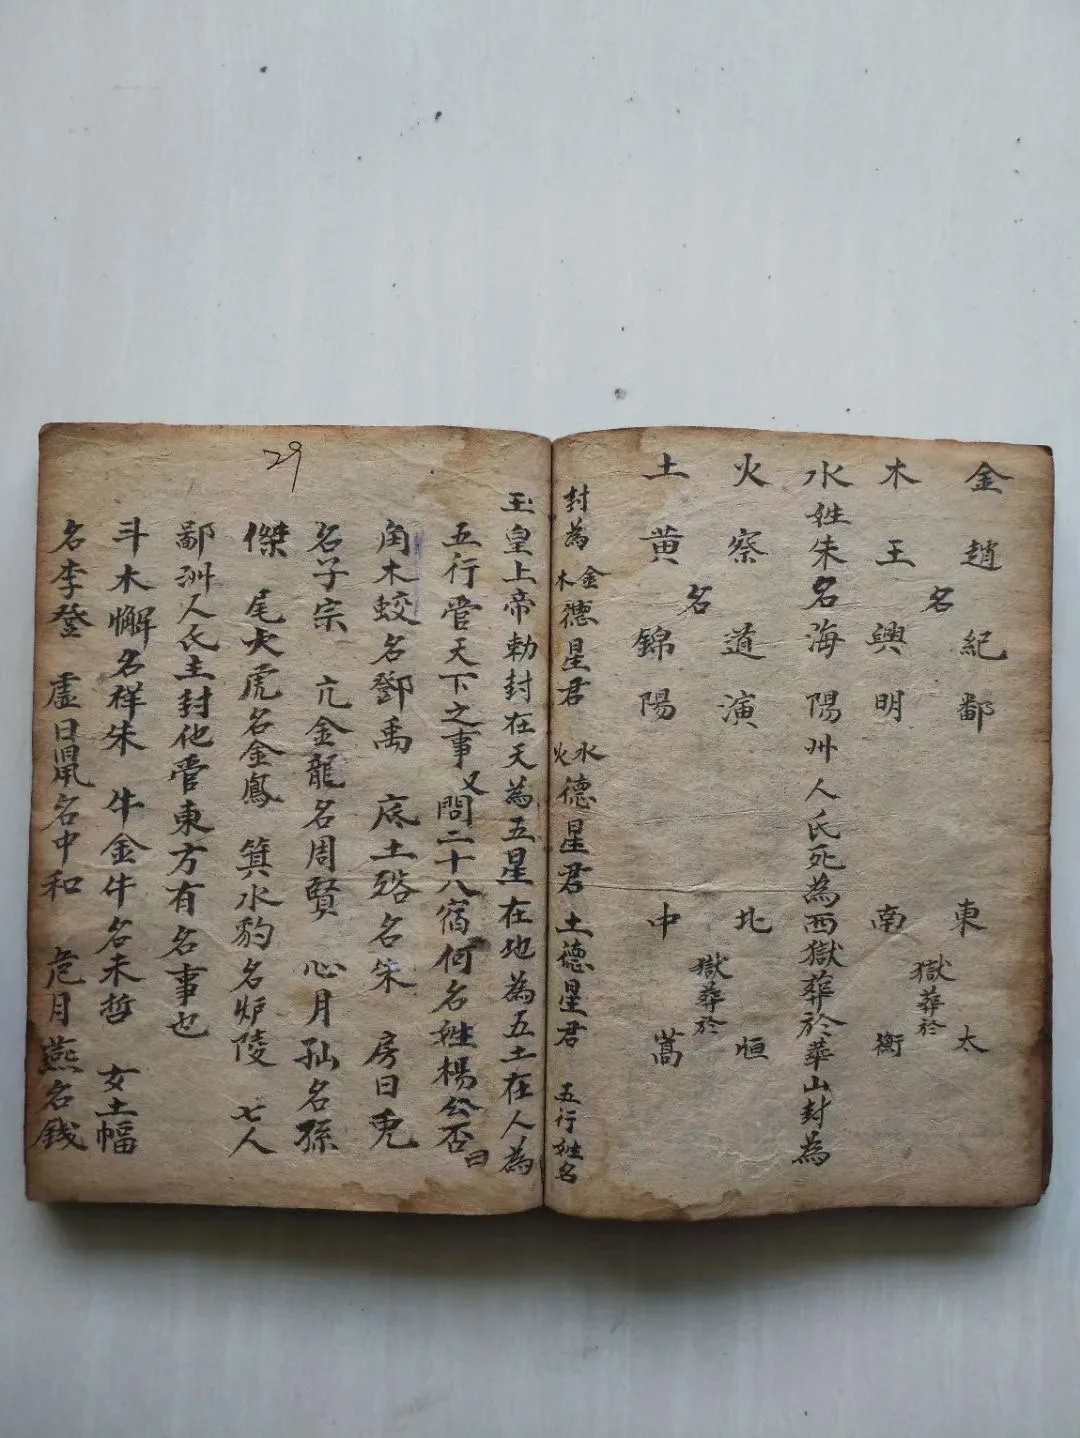 金趙紀鄱 東 太
名 獄葬於
木王興明 南 衡
水姓朱名海陽州人氏死為西獄葬於華山封為
火察道演 北 恒
名 獄葬於
土黃錦陽 中 嵩
封為金木德星君 水火德星君 土德星君 五行姓名
玉皇上帝勅封在天為五星在地為五土在人為
五行管天下之事又問二十八宿何名姓楊公否曰
角木蛟名鄧禹 底土狢名朱 房日兎
名子宗 亢金龍名周賢 心月狐名孫
傑 尾火虎名金鳳 箕水豹名炉陵 七人
鄱洲人氏主封他管東方有名事也
斗木懈名样朱 牛金牛名未哲 女土幅
名李登 虛日鼠名中和 危月燕名銭
29